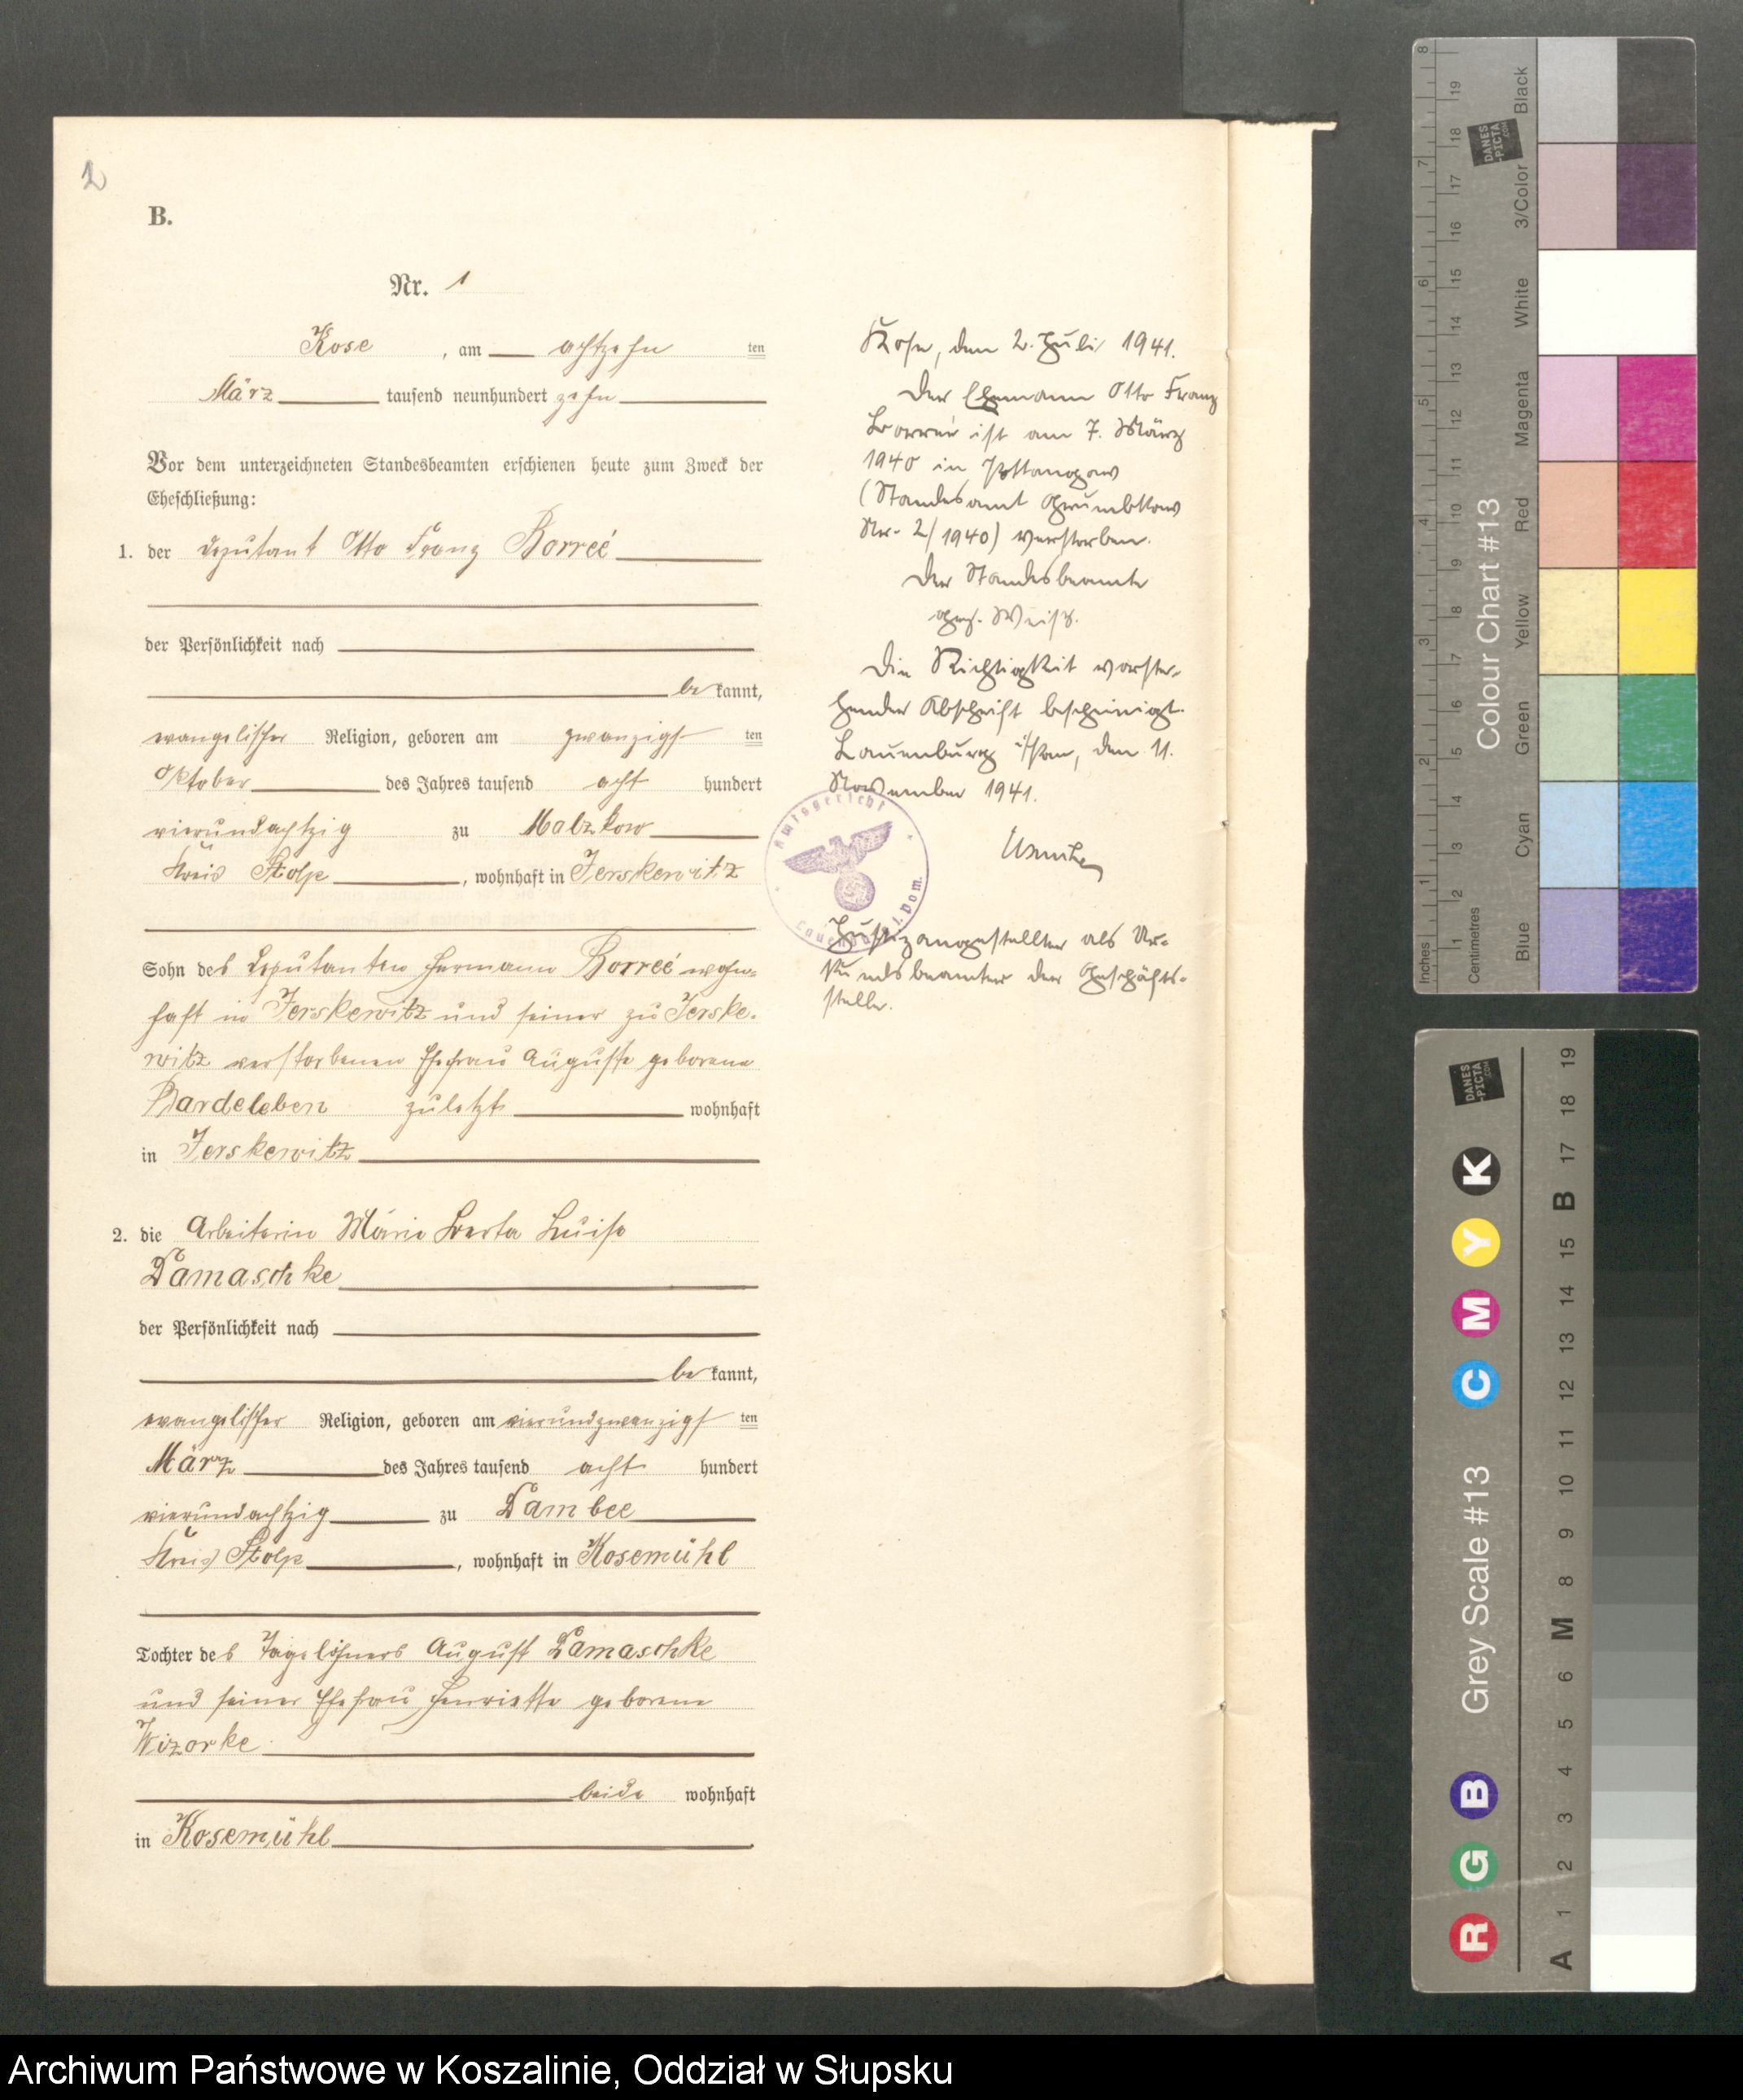 2
B.
Nr. 1
Kose, am achtzehn ten
März tausend neunhundert zehn
Vor dem unterzeichneten Standesbeamten erschienen heute zum Zweck der
Eheschließung:
1. der Deputant Otto Franz Borreé
der Persönlichkeit nach
be kannt,
evangelischer Religion, geboren am zwanzigst ten
Oktober des Jahres tausend acht hundert
vierundachtzig zu Malzkow
Kreis Stolp, wohnhaft in Jerskewitz
Sohn des Deputanten Hermann Borreé wohn-
haft in Jerskewitz und seiner zu Jerske-
witz verstorbenen Ehefrau Auguste geborene
Bardeleben zuletzt wohnhaft
in Jerskewitz
2. die Arbeiterin Marie Berta Luise
Damaschke
der Persönlichkeit nach
be kannt,
evangelischer Religion, geboren am vierundzwanzigst ten
März des Jahres tausend acht hundert
vierundachtzig zu Dambee
Kreis Stolp, wohnhaft in Kosemühl
Tochter des Tagelöhners August Damaschke
und seiner Ehefrau Henriette geborene
Wizorke
beide wohnhaft
in Kosemühl
Kose, den 2. Juli 1941.
Der Ehemann Otto Franz
Borreé ist am 7. März
1940 in Pottangow
(Standesamt Grumbkow
Nr. 2/1940) verstorben.
Der Standesbeamte
gez. Weiß.
Die Richtigkeit vorste-
hender Abschrift bescheinigt.
Lauenburg i/Pom, den 11.
November 1941.
Amtsgericht
Lauenburg i. Pom.
Justizangestellter als Ur-
kundsbeamter der Geschäfts-
stelle.
Colour Chart #13
Blue Cyan Green Yellow Red Magenta White 3/Color Black
Inches 1 2 3 4 5 6 7 8
Centimetres 1 2 3 4 5 6 7 8 9 10 11 12 13 14 15 16 17 18 19
DANES
-PICTA
.COM
Grey Scale #13
R G B C M Y K
A 1 2 3 4 5 6 M 8 9 10 11 12 13 14 15 B 17 18 19
DANES
-PICTA
.COM
Archiwum Państwowe w Koszalinie, Oddział w Słupsku